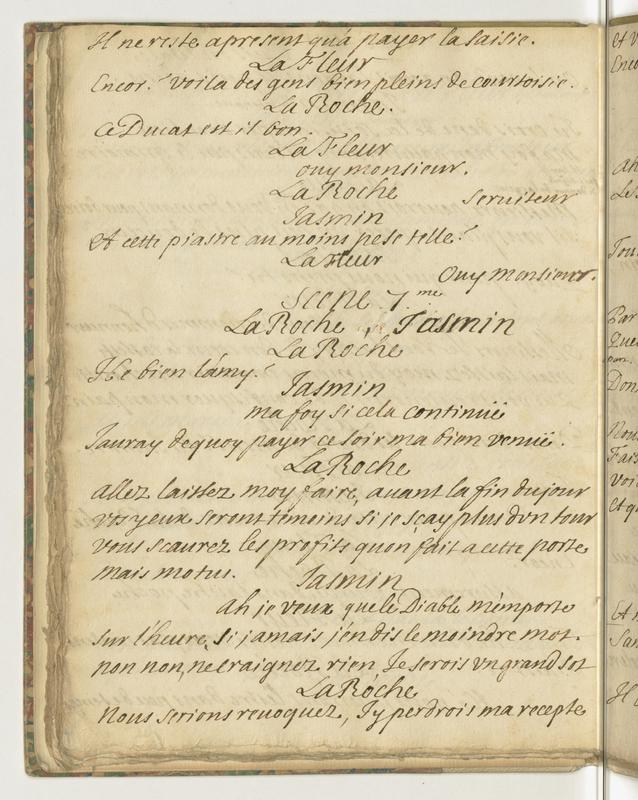 Il ne reste apresent qu'à payer la saisie.
La Fleur
Encor? voila des gens bien pleins de courtoisie.
La Roche.
Ce Ducat est il bon.
La Fleur
ouy monsieur.
La Roche
Seruiteur
Jasmin
Et cette piastre au moins pese telle?
La Fleur
Ouy monsieur.
Scene 7.me
La Roche, Jasmin
La Roche
He bien l'amy?
Jasmin
ma foy si cela continuë
Jauray dequoy payer ce soir ma bien venuë.
La Roche
allez laissez moy faire, auant la fin du jour
vos yeux seront temoins si je sçay plus d'vn tour
vous scaurez les profits quon fait a cette porte
mais motus.
Jasmin
ah je veux que le Diable m'emporte
sur l'heure, si jamais j'en dis le moindre mot.
non non, ne craignez rien Je serois vn grand sot
La Roche
Nous serions reuoquez, J'y perdrois ma recepte